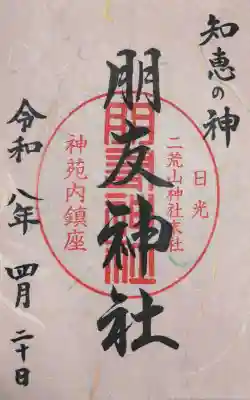 知恵の神
日光
二荒山神社末社
朋友神社
神苑内鎮座
令和八年 四月 二十日